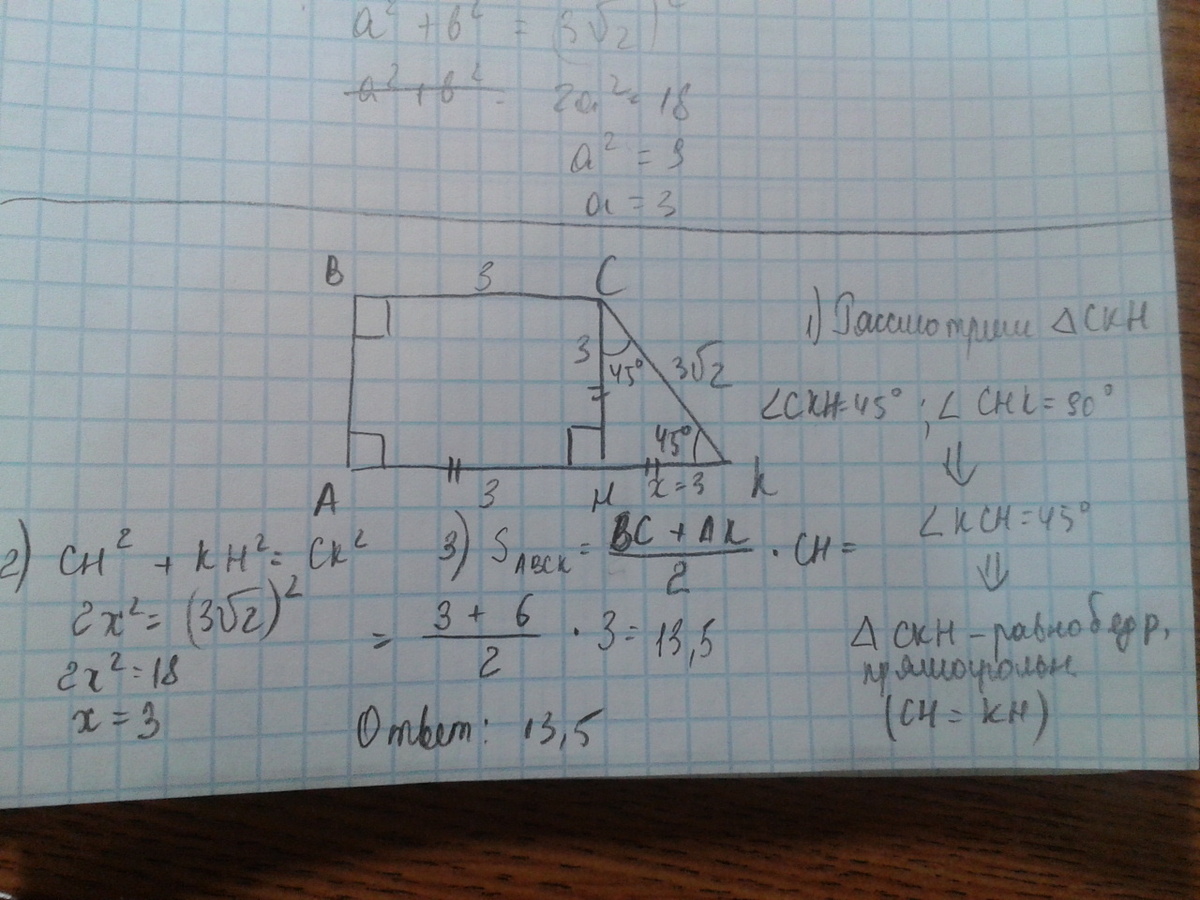 a² + b² = (3√2)²
a² + b² 2a² = 18
a² = 9
a = 3
B 3 C
3 45° 3√2
45°
A 3 H x=3 K
1) Рассмотрим △CKH
∠CKH=45° ; ∠CHK=90°
⇓
∠KCH=45°
⇓
△CKH – равнобедр,
прямоугольн
(CH = KH)
2) CH² + KH² = CK²
2x² = (3√2)²
2x² = 18
x = 3
3) S_ABCK = (BC + AK)/2 · CH =
= (3 + 6)/2 · 3 = 13,5
Ответ: 13,5